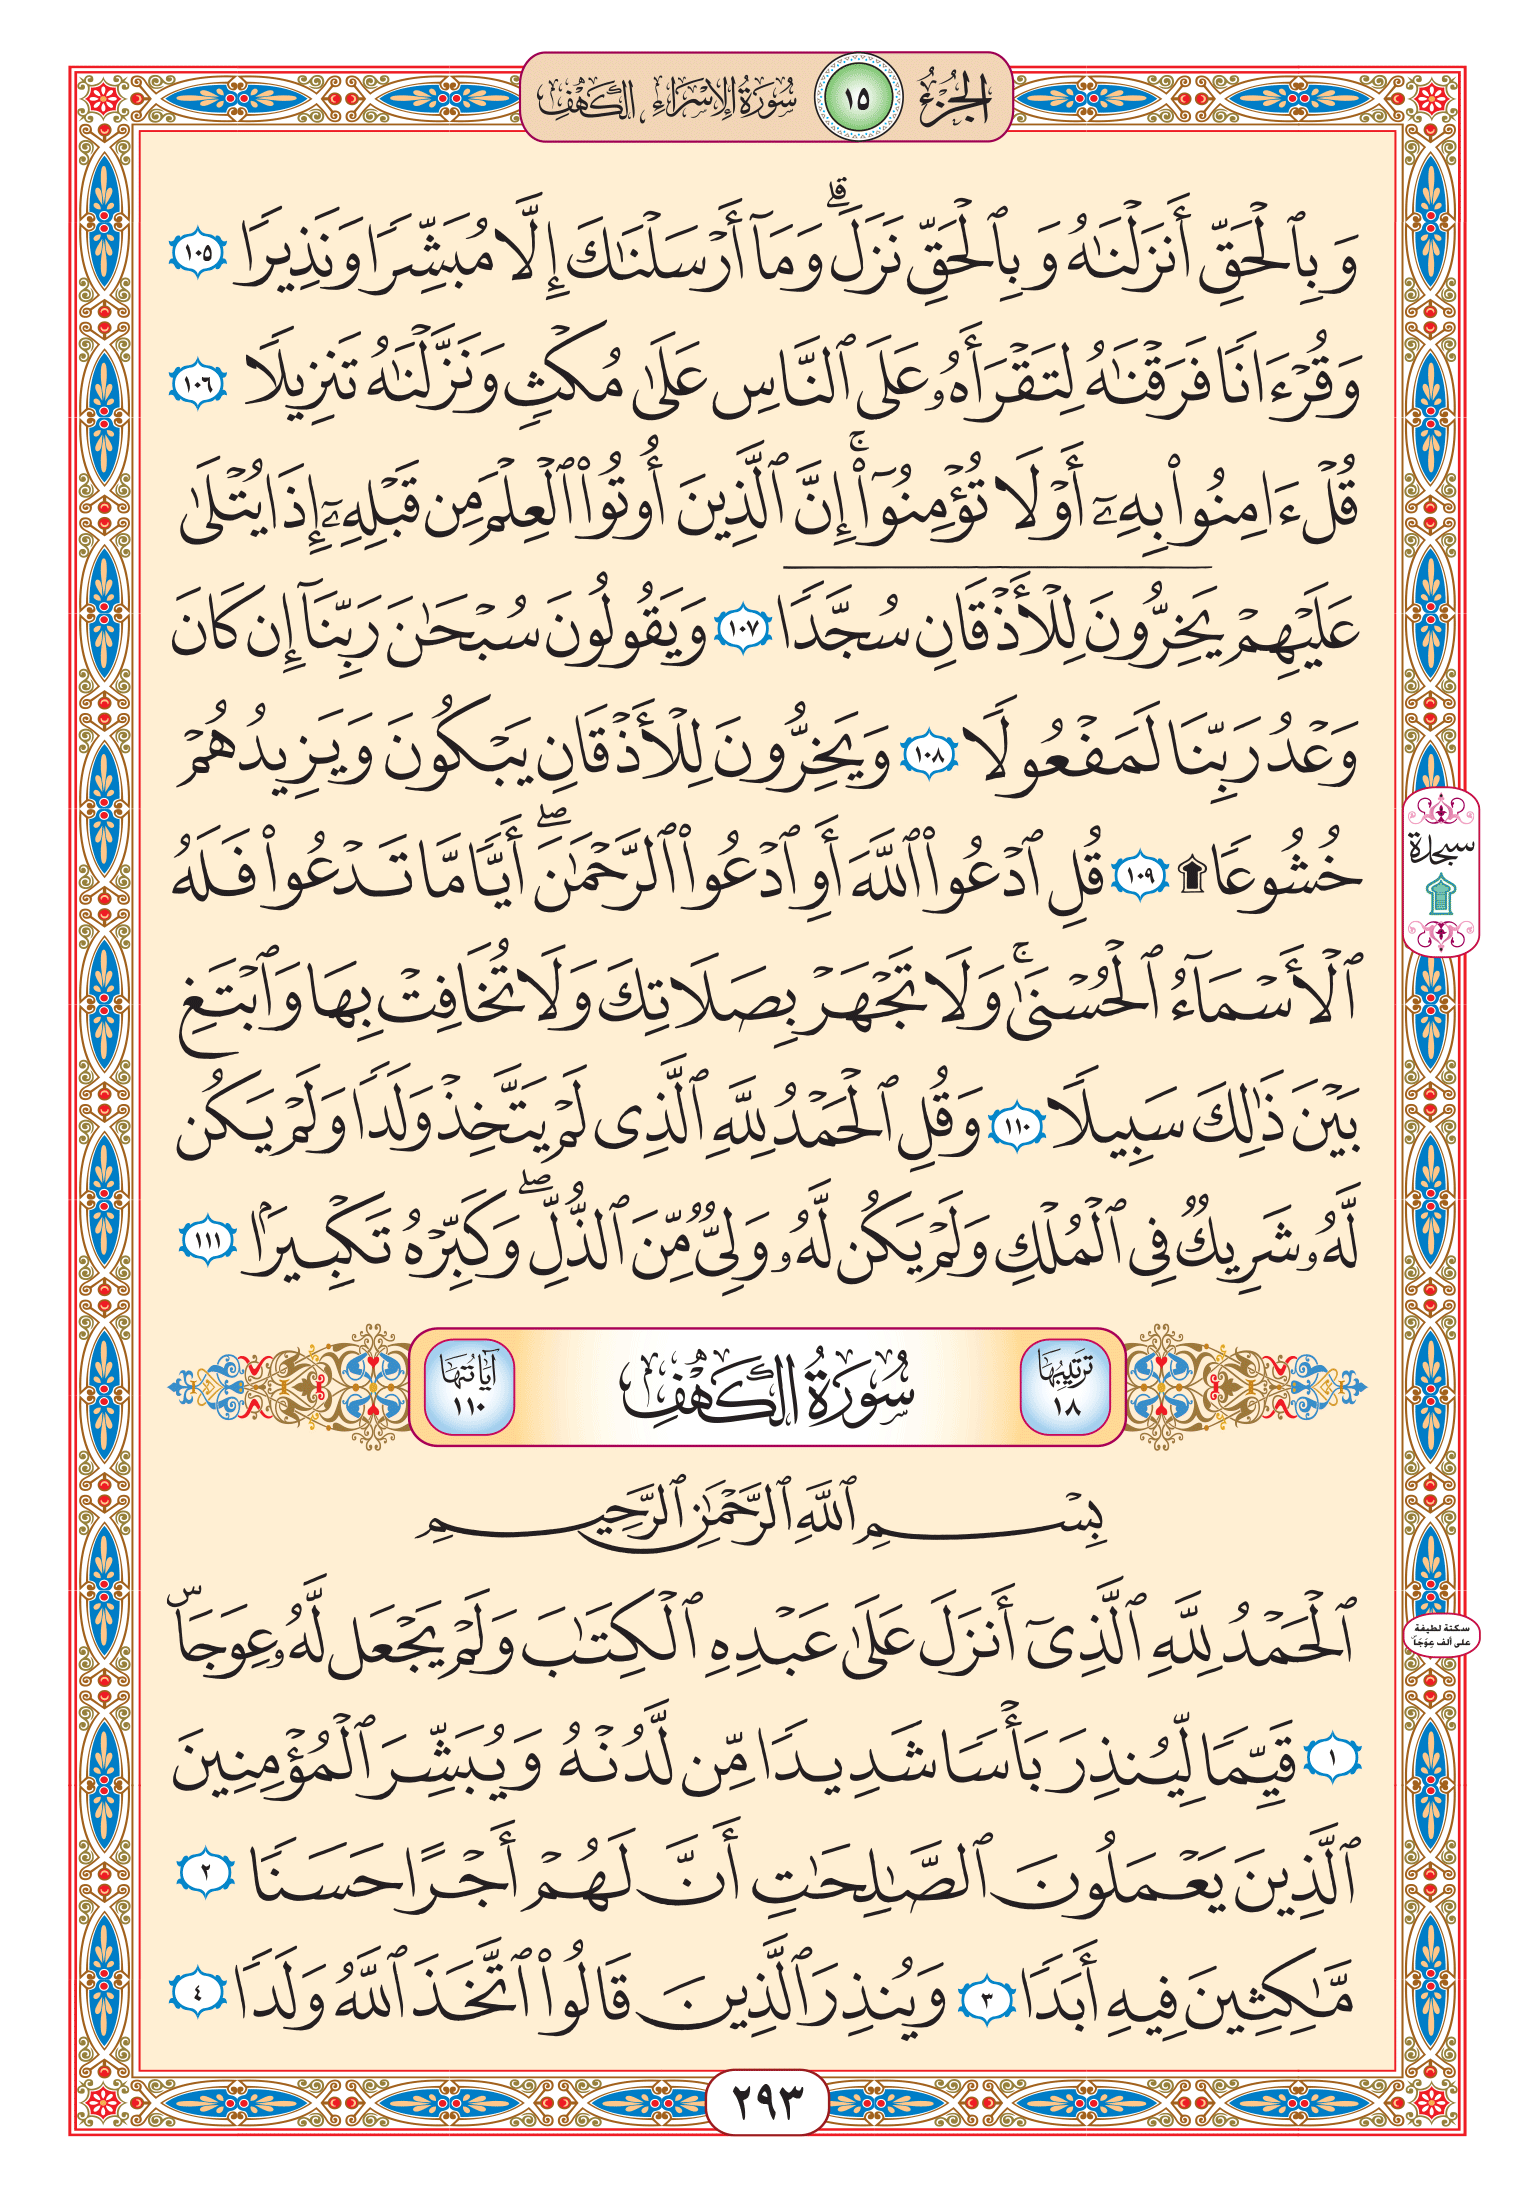 الجزء ١٥ سورة الإسراء الكهف
وَبِٱلْحَقِّ أَنزَلْنَٰهُ وَبِٱلْحَقِّ نَزَلَ ۗ وَمَآ أَرْسَلْنَٰكَ إِلَّا مُبَشِّرًا وَنَذِيرًا ١٠٥
وَقُرْءَانًا فَرَقْنَٰهُ لِتَقْرَأَهُۥ عَلَى ٱلنَّاسِ عَلَىٰ مُكْثٍ وَنَزَّلْنَٰهُ تَنزِيلًا ١٠٦
قُلْ ءَامِنُوا۟ بِهِۦٓ أَوْ لَا تُؤْمِنُوٓا۟ ۚ إِنَّ ٱلَّذِينَ أُوتُوا۟ ٱلْعِلْمَ مِن قَبْلِهِۦٓ إِذَا يُتْلَىٰ
عَلَيْهِمْ يَخِرُّونَ لِلْأَذْقَانِ سُجَّدًا ١٠٧ وَيَقُولُونَ سُبْحَٰنَ رَبِّنَآ إِن كَانَ
وَعْدُ رَبِّنَا لَمَفْعُولًا ١٠٨ وَيَخِرُّونَ لِلْأَذْقَانِ يَبْكُونَ وَيَزِيدُهُمْ
خُشُوعًا ۩ ١٠٩ قُلِ ٱدْعُوا۟ ٱللَّهَ أَوِ ٱدْعُوا۟ ٱلرَّحْمَٰنَ ۖ أَيًّا مَّا تَدْعُوا۟ فَلَهُ
ٱلْأَسْمَآءُ ٱلْحُسْنَىٰ ۚ وَلَا تَجْهَرْ بِصَلَاتِكَ وَلَا تُخَافِتْ بِهَا وَٱبْتَغِ
بَيْنَ ذَٰلِكَ سَبِيلًا ١١٠ وَقُلِ ٱلْحَمْدُ لِلَّهِ ٱلَّذِى لَمْ يَتَّخِذْ وَلَدًا وَلَمْ يَكُن
لَّهُۥ شَرِيكٌ فِى ٱلْمُلْكِ وَلَمْ يَكُن لَّهُۥ وَلِىٌّ مِّنَ ٱلذُّلِّ ۖ وَكَبِّرْهُ تَكْبِيرًۢا ١١١
ترتيبها ١٨ سُورَةُ الكَهْفِ آياتها ١١٠
بِسْمِ ٱللَّهِ ٱلرَّحْمَٰنِ ٱلرَّحِيمِ
ٱلْحَمْدُ لِلَّهِ ٱلَّذِىٓ أَنزَلَ عَلَىٰ عَبْدِهِ ٱلْكِتَٰبَ وَلَمْ يَجْعَل لَّهُۥ عِوَجَاۜ
١ قَيِّمًا لِّيُنذِرَ بَأْسًا شَدِيدًا مِّن لَّدُنْهُ وَيُبَشِّرَ ٱلْمُؤْمِنِينَ
ٱلَّذِينَ يَعْمَلُونَ ٱلصَّٰلِحَٰتِ أَنَّ لَهُمْ أَجْرًا حَسَنًا ٢
مَّٰكِثِينَ فِيهِ أَبَدًا ٣ وَيُنذِرَ ٱلَّذِينَ قَالُوا۟ ٱتَّخَذَ ٱللَّهُ وَلَدًا ٤
سجدة
سكتة لطيفة
على ألف عِوَجَاۜ
٢٩٣